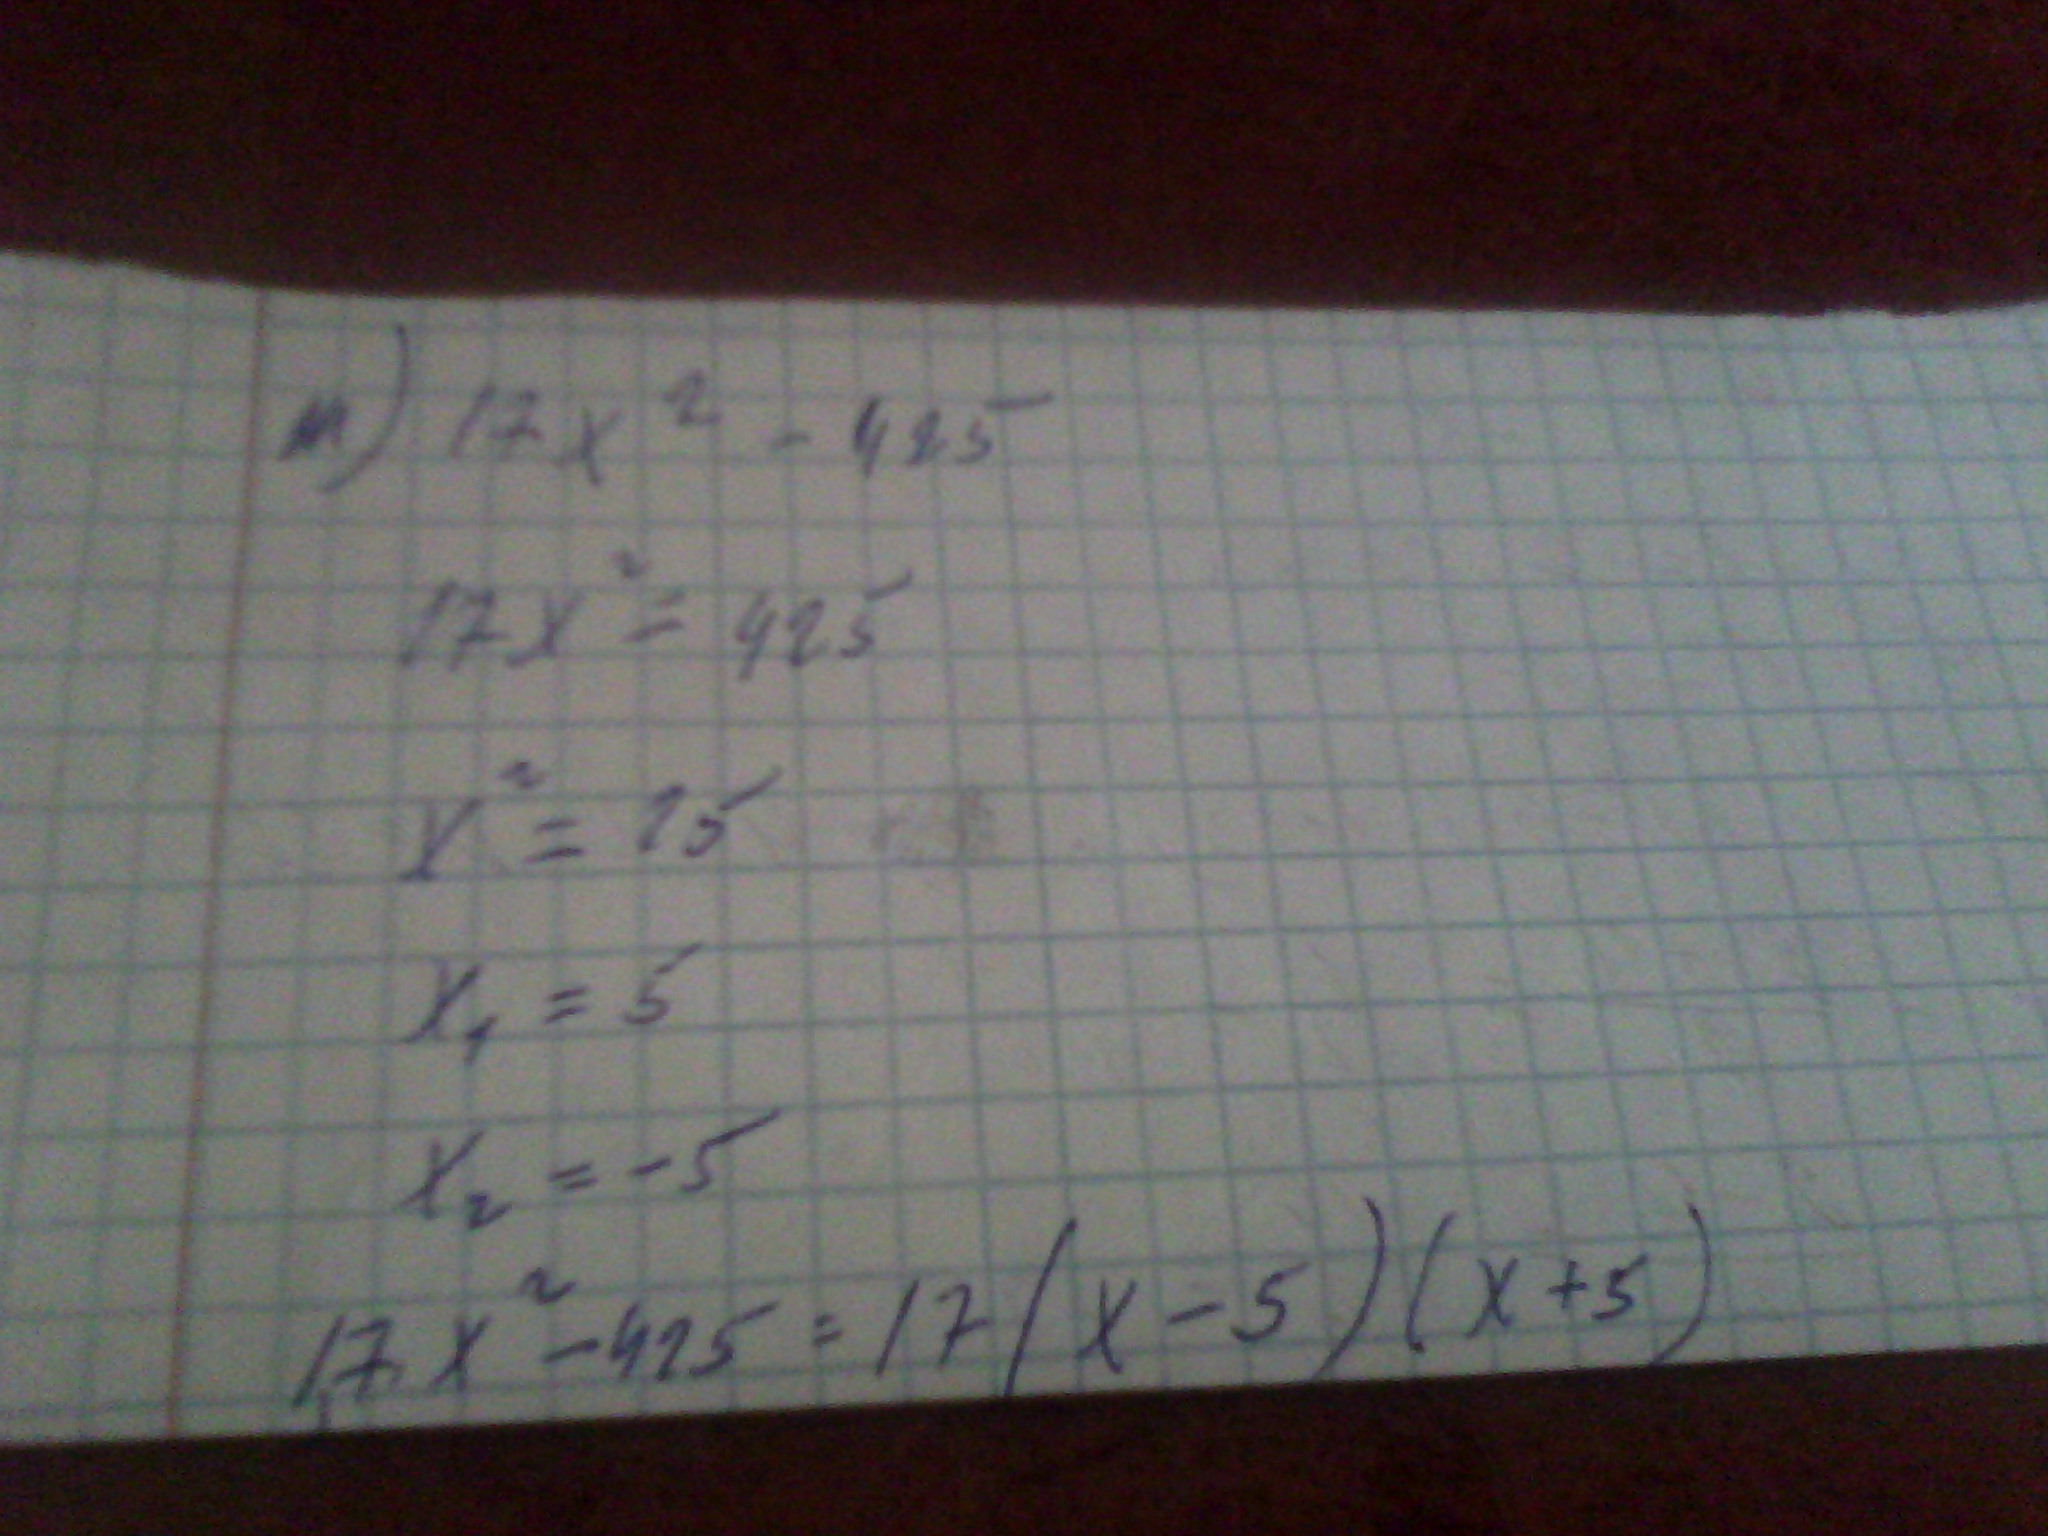 м) 17x² - 425
17x² = 425
x² = 25
x₁ = 5
x₂ = -5
17x² - 425 = 17(x - 5)(x + 5)